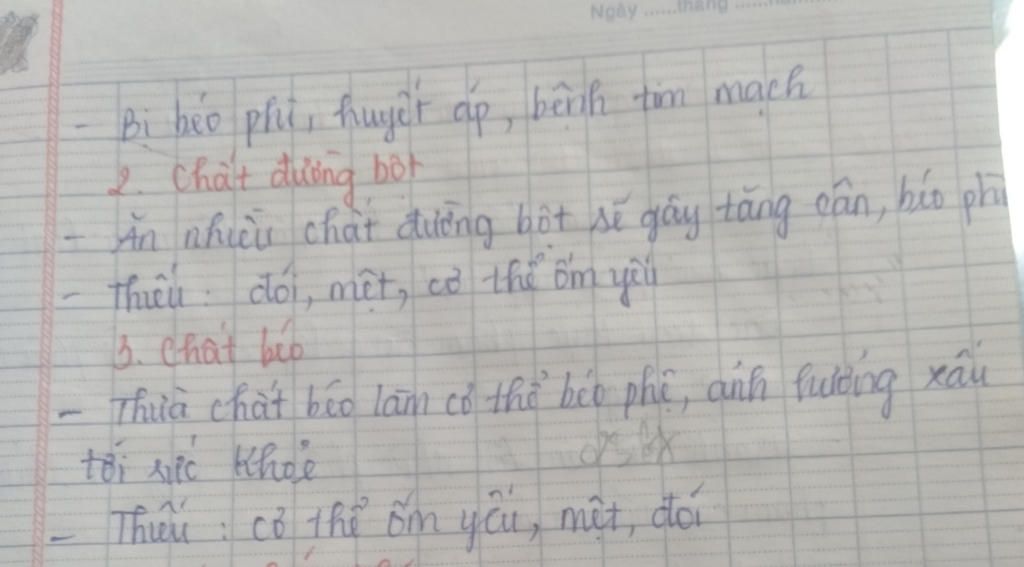 Ngày ......tháng ......
- Bị béo phì, huyết áp, bệnh tim mạch
2. Chất đường bột
- Ăn nhiều chất đường bột sẽ gây tăng cân, béo phì
- Thiếu : đói, mệt, cơ thể ốm yếu
3. Chất béo
- Thừa chất béo làm cơ thể béo phệ, ảnh hưởng xấu
tới sức khoẻ
- Thiếu : cơ thể ốm yếu, mệt, đói